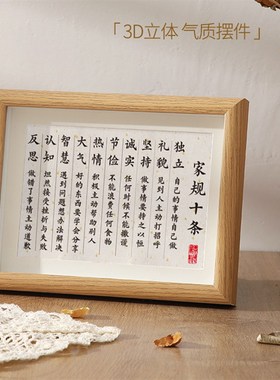 「3D立体 气质摆件」
家规十条
独立 自己的事情自己做
礼貌 见到人主动打招呼
坚持 做事情要持之以恒
诚实 任何时候不能撒谎
节俭 不能浪费任何食物
热情 积极主动帮助别人
大气 好的东西要学会分享
智慧 遇到问题想办法解决
认知 坦然接受挫折与失败
反思 做错了事情主动道歉